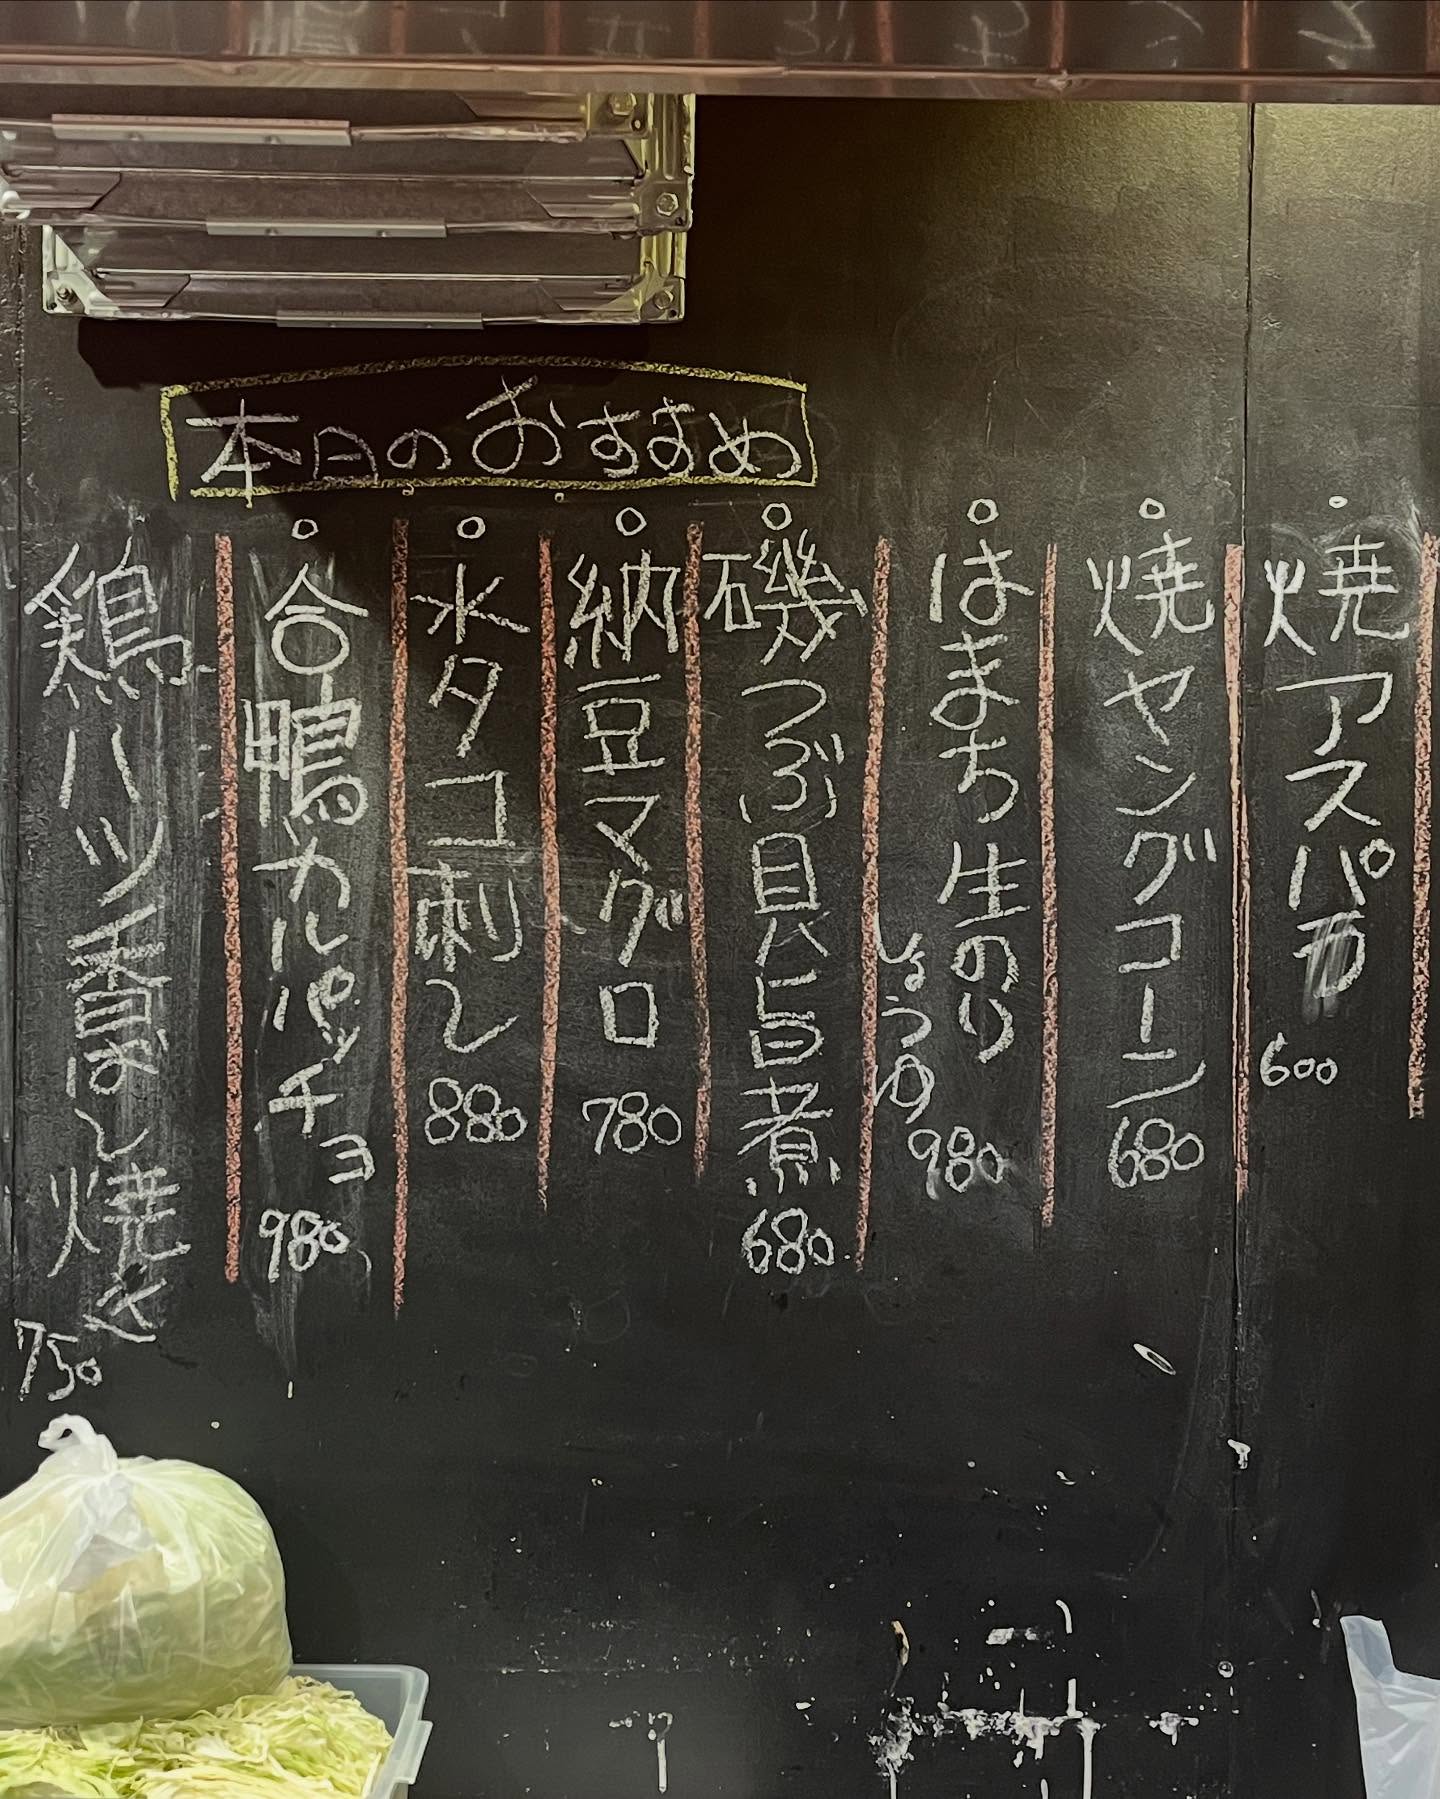 本日のおすすめ
焼アスパラ 600
焼ヤングコーン 680
はまち生のりしょうゆ 980
磯つぶ貝旨煮 680
納豆マグロ 780
水タコ刺し 880
合鴨カルパッチョ 980
鶏ハツ香ばし焼き 750